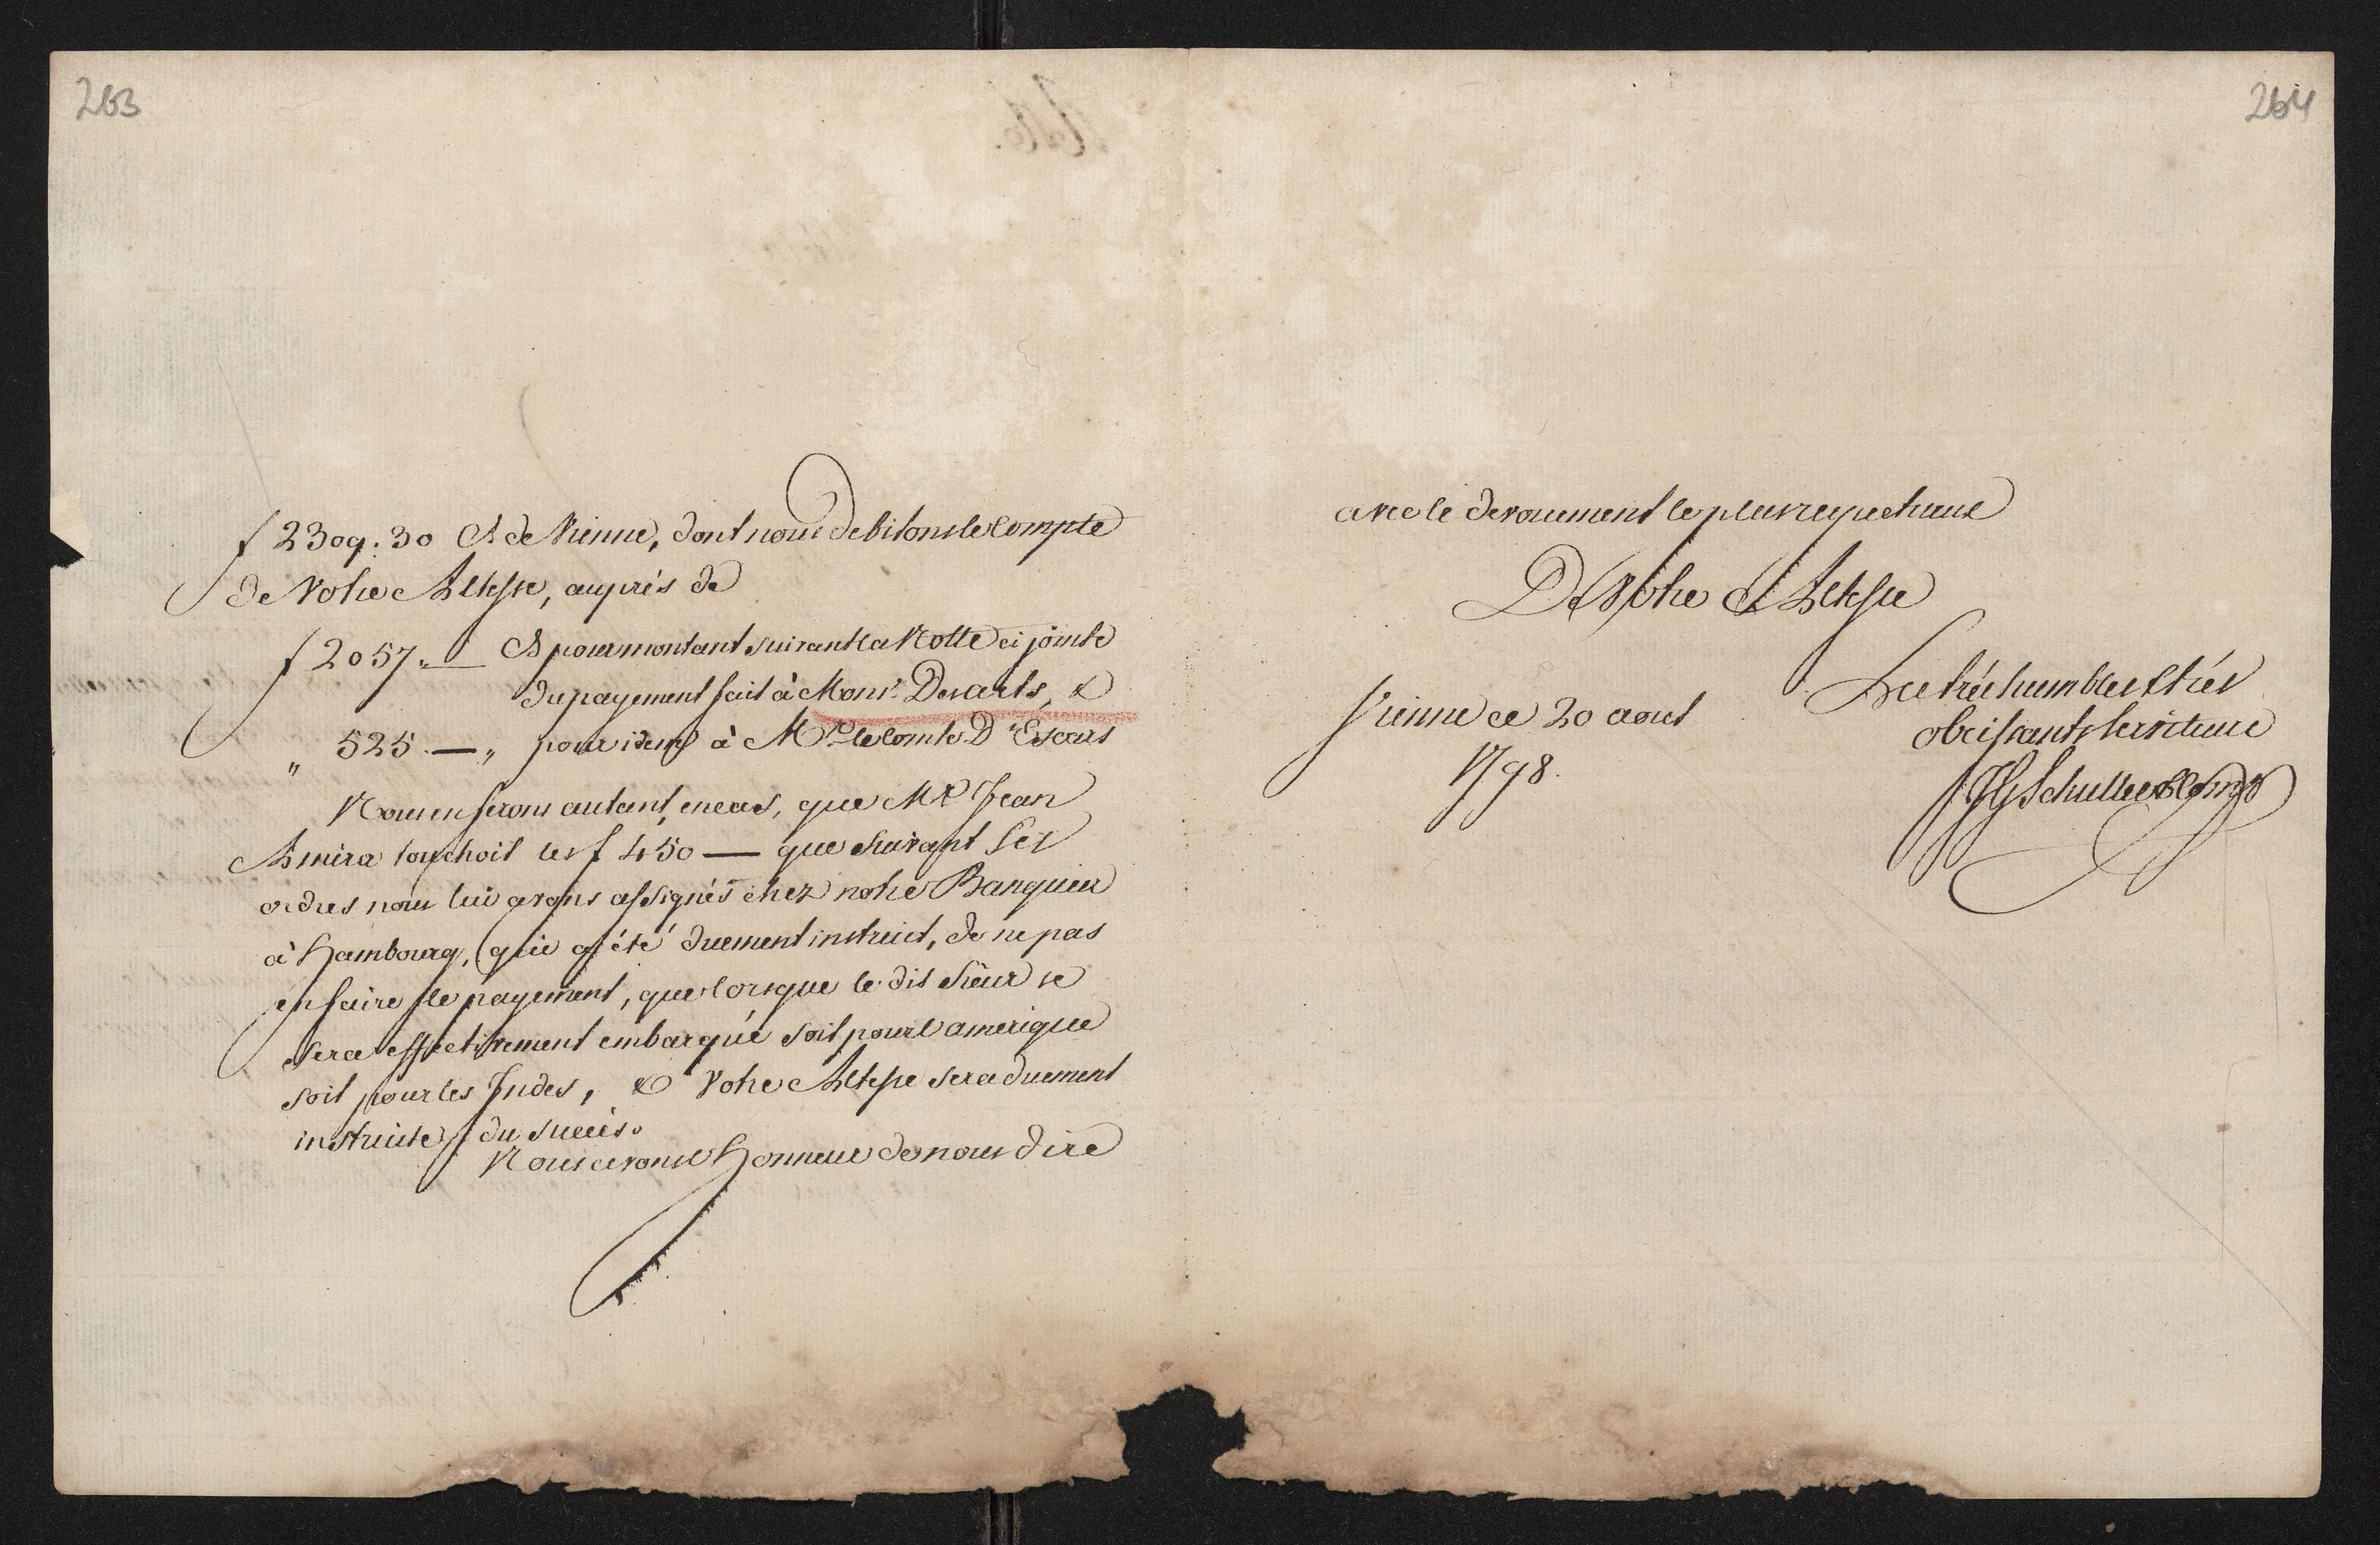 263
f 2309. 30 Ct de Vienne, dont nous debitons le Compte
de Votre Altesse, auprès de
f 2057. " — Ct pour montant suivant la Notte ci jointe
du payement fait à Monsr. Desarts, &
" 525. — " pour idem à Mr. le Comte D'Escars
Nous en ferons autant, en cas, que Mr. Jean
Amira touchoit les f 450 — que suivant Ses
ordres nous lui avons assignés chez notre Banquier
à Hambourg, qui a été duement instruit, de ne pas
en faire le payement, que lorsque le dit Sieur se
sera effectivement embarqué soit pour l'amerique
soit pour les Indes, & Votre Altesse sera duement
instruite du succès.
Nous avons l'Honneur de nous dire
264
avec le devouement le plus respectueux
De Votre Altesse
Les très humbles & très
obeissants Serviteurs
Vienne ce 20 aout
1798.
Schuller & Comp